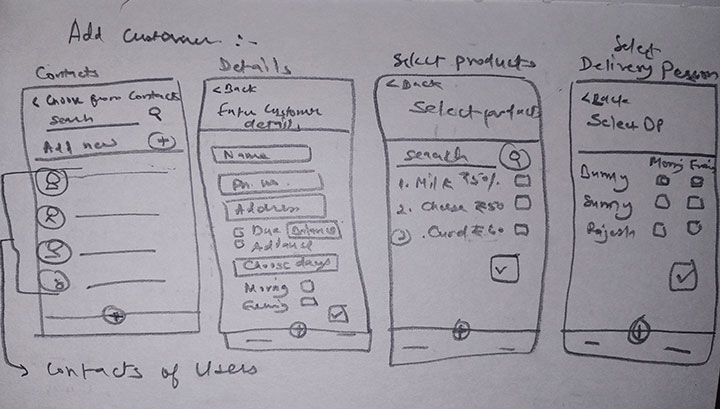 Add Customer :-
Contacts
< Choose from Contacts
Search
Add new +
Contacts of Users
Details
< Back
Enter Customer
details
Name
Ph. no.
Address
Due Balance
Advance
Choose days
Morning
Select products
< Back
Select product
Search
1. Milk ₹50/.
2. Cheese ₹50
3 . Curd ₹
Select
Delivery Person
< Back
Select DP
Bunny
Sunny
Rajesh